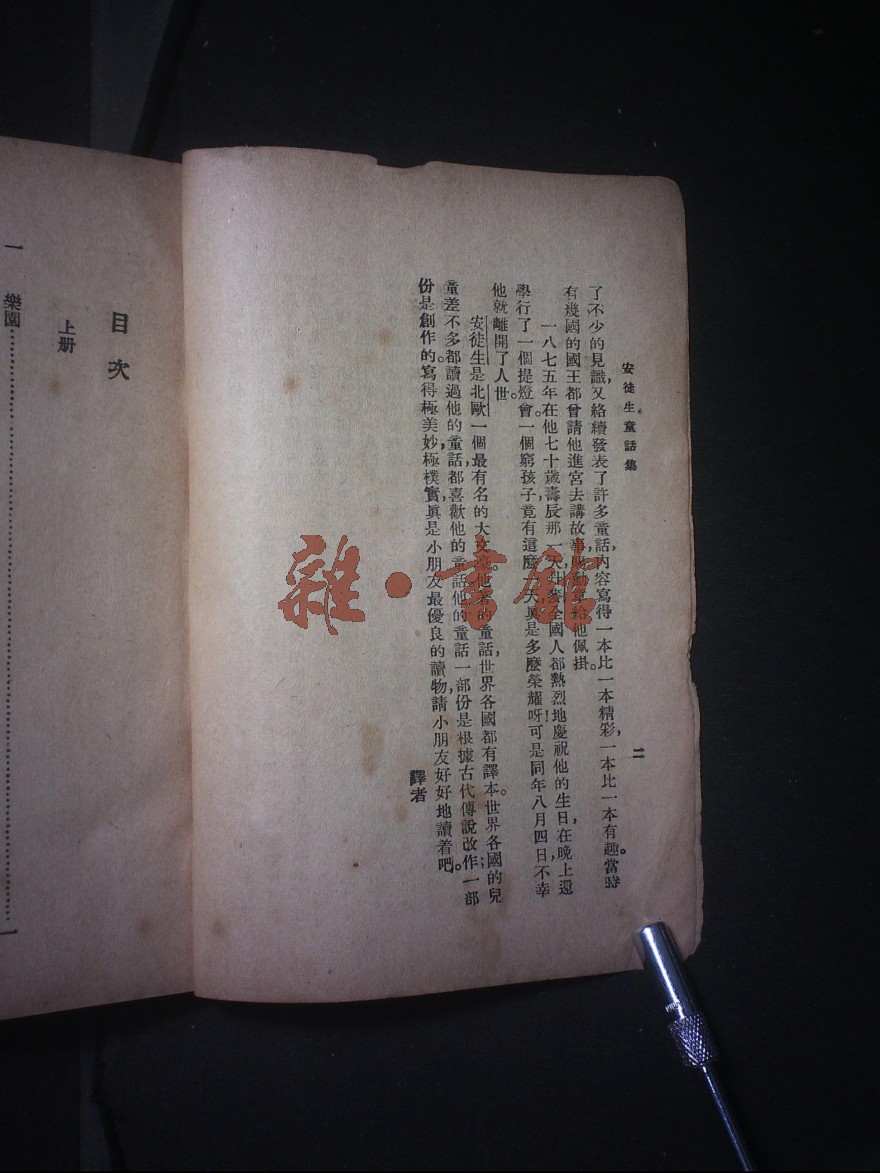 安徒生童話集
二
了不少的見識，又絡續發表了許多童話，內容寫得一本比一本精彩，一本比一本有趣。當時
有幾國的國王都曾請他進宮去講故事，賜勳章給他佩掛。
一八七五年在他七十歲壽辰那一天，丹麥全國人都熱烈地慶祝他的生日，在晚上還
學行了一個提燈會。一個窮孩子，竟有這麼一天，真是多麼榮耀呀！可是同年八月四日，不幸
他就離開了人世。
安徒生是北歐一個最有名的大文豪。他著的童話，世界各國都有譯本。世界各國的兒
童差不多都讀過他的童話，都喜歡他的童話。他的童話一部份是根據古代傳說改作；一部
份是創作的。寫得極美妙，極樸實，真是小朋友最優良的讀物，請小朋友好好地讀着吧。
譯者
目次
上册
一 樂園……一
雜·書館